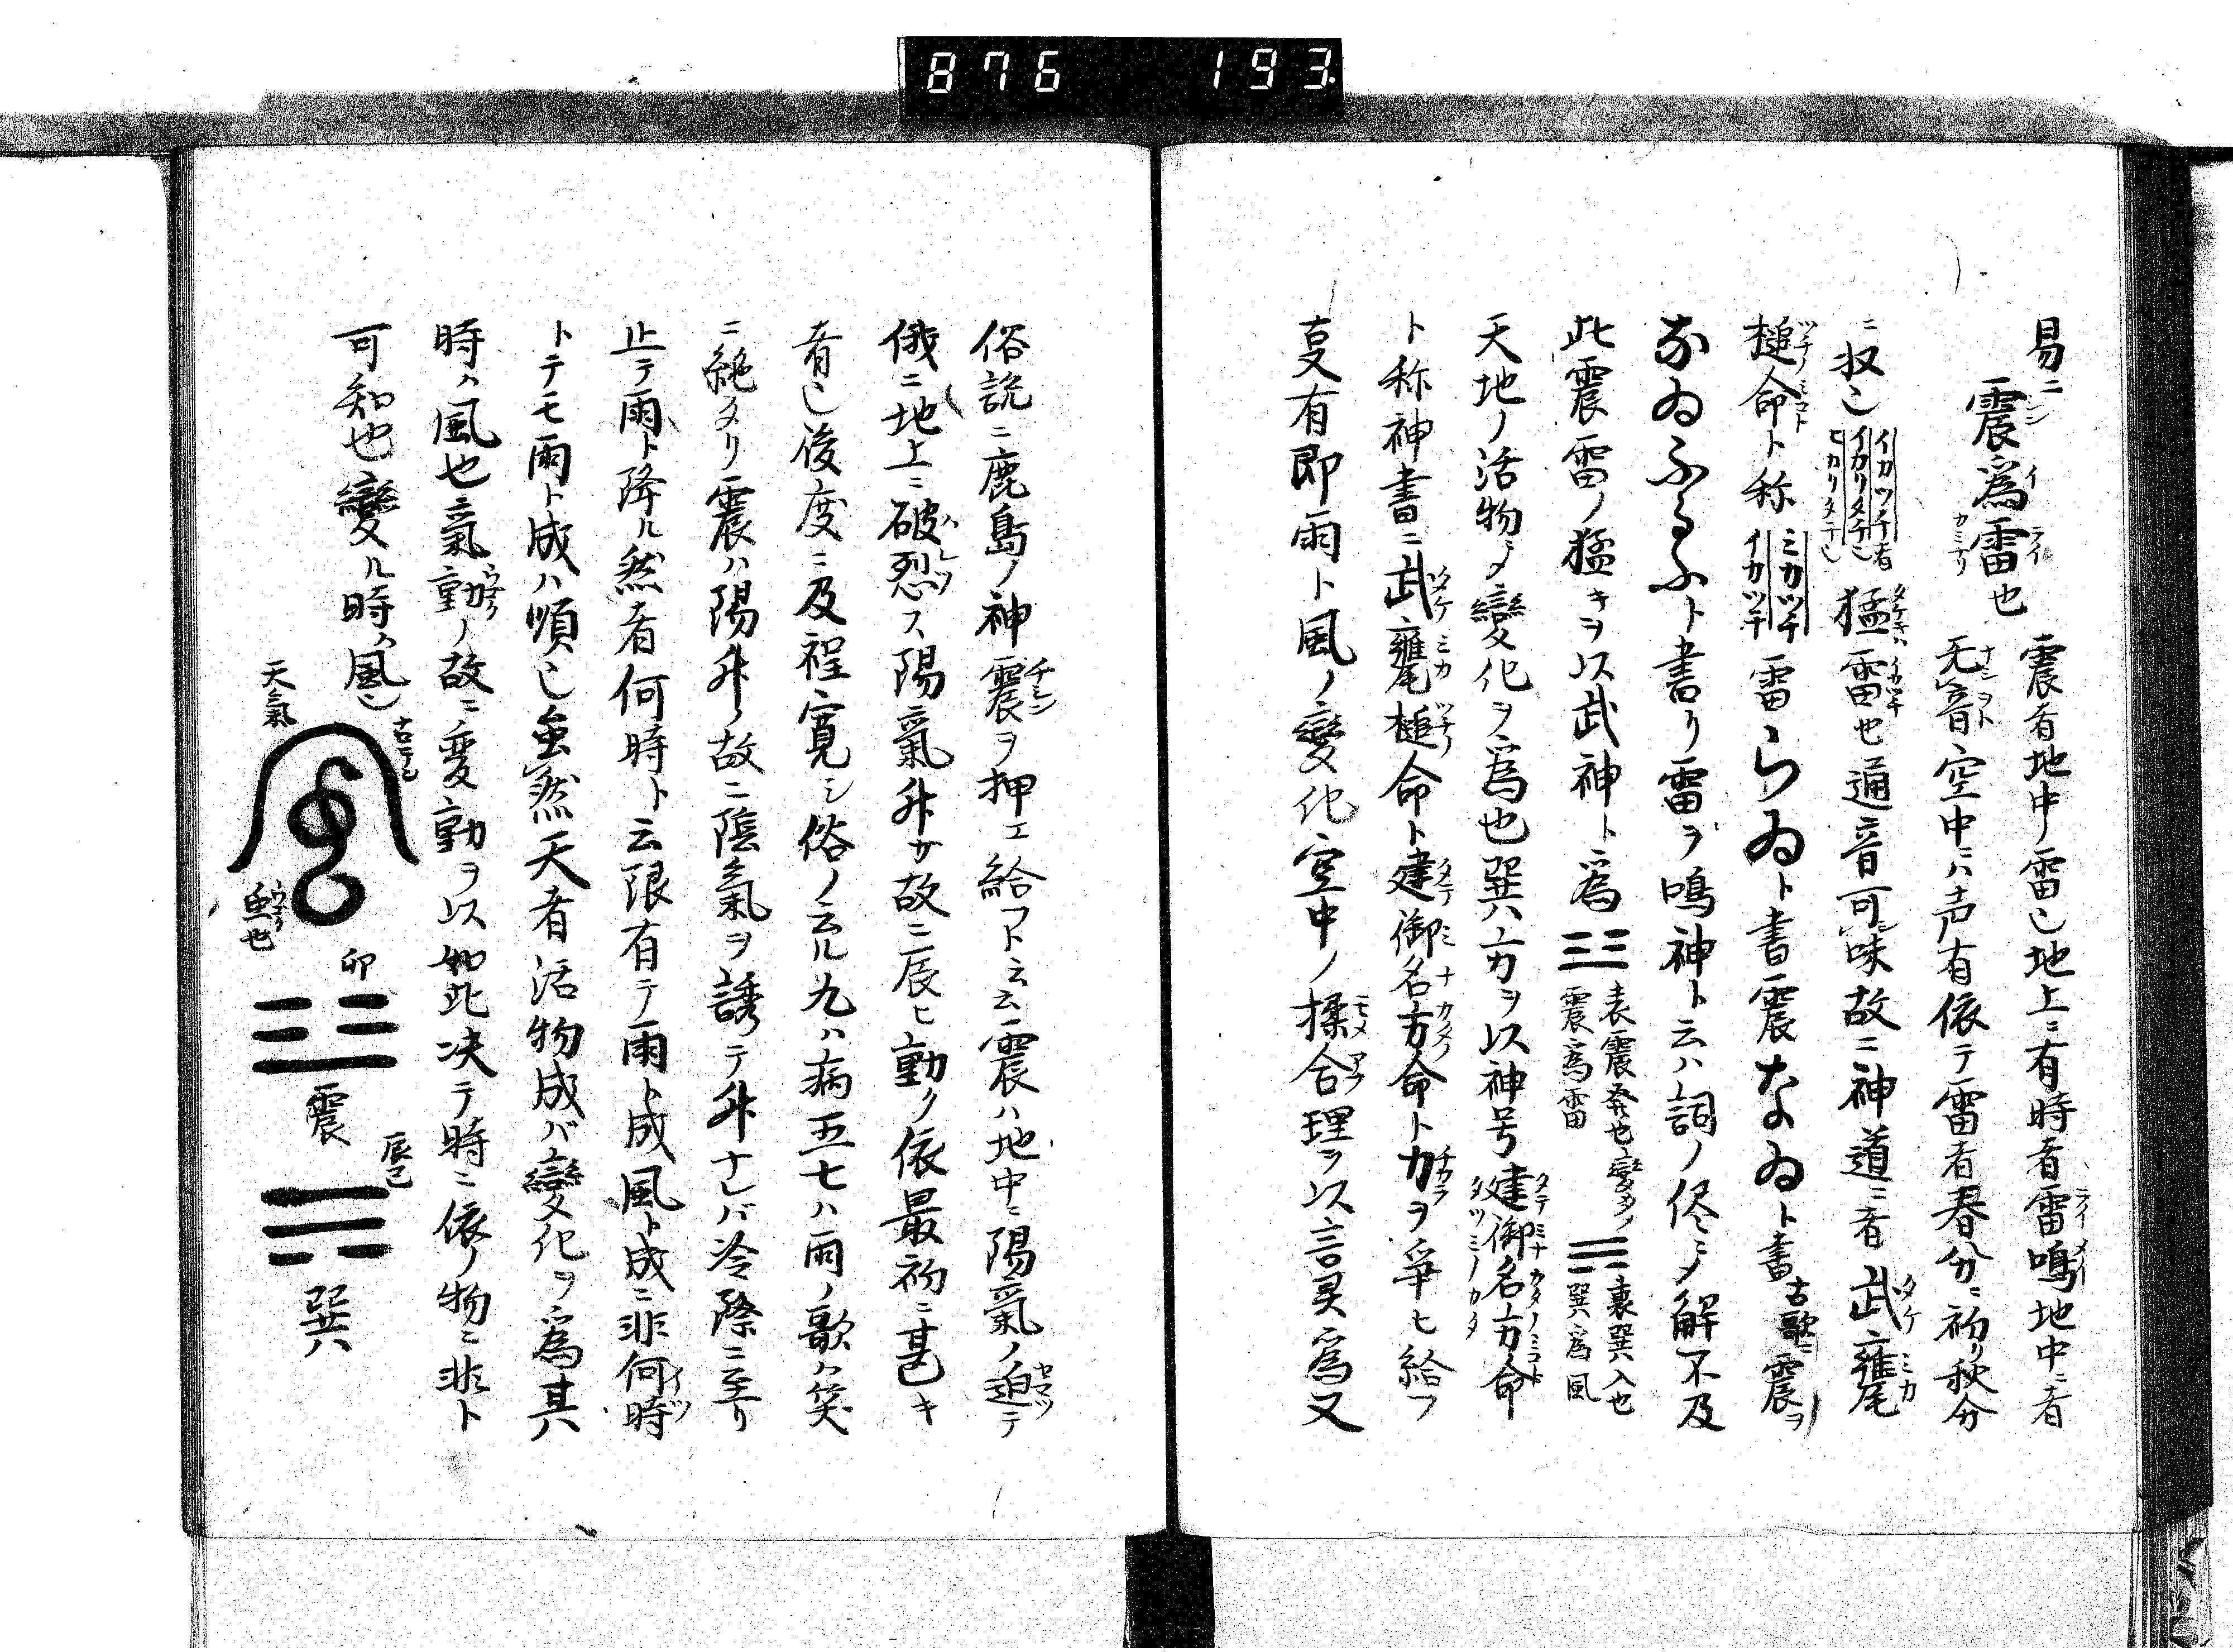 876 193
易ニ震為雷也
震者地中ノ雷也地上ニ有時者雷鳴地中ニ者
无音空中ニハ声有依テ雷者春分ニ初リ秋分
ニ収也イカツチ者イカリタチ也ヒカリタチ也猛雷也通音可味故ニ神道ニ者武甕
槌命ト称ミカツチイカツチ雷らゐト書震なゐト書古歌ニ震ヲ
なゐふるふト書リ雷ヲ鳴神ト云ハ詞ノ侭ニメ解不及
此震雷ノ猛キヲ以武神ト為☳表震発也震為雷変メノ☴裏巽入也巽為風
天地ノ活物ニメ變化ヲ為也巽ハ方ヲ以神号建御名方ノ命
ト称神書ニ武甕槌命ト建御名方命ト力ヲ爭ヒ給フ
叓有即雨ト風ノ變化空中ノ揉合理ヲ以言灵為又
俗説ニ鹿島ノ神震ヲ押エ給フト云云震ハ地中ニ陽氣ノ迫テ
俄ニ地上ニ破烈ス陽氣升カ故ニ辰ヒ動ク依最初ニ甚キ
者也後度ニ及程寛シ俗ノ云ル九ハ病五七ハ雨ノ歌ハ笑
ニ絶タリ震ハ陽升ノ故ニ陰氣ヲ誘テ升ナレバ冷際ニ至リ
止テ雨ト降ル然者何時ト云限有テ雨ト成風ト成ニ非何時
トテモ雨ト成ハ順也虽然天者活物成バ變化ヲ為其
時ハ風也氣動ノ故ニ変動ヲ以如此决テ時ニ依ノ物ニ非ト
可知也變ル時ハ風也
天氣
古テン
虫也
卯
☳
震
辰巳
☴
巽